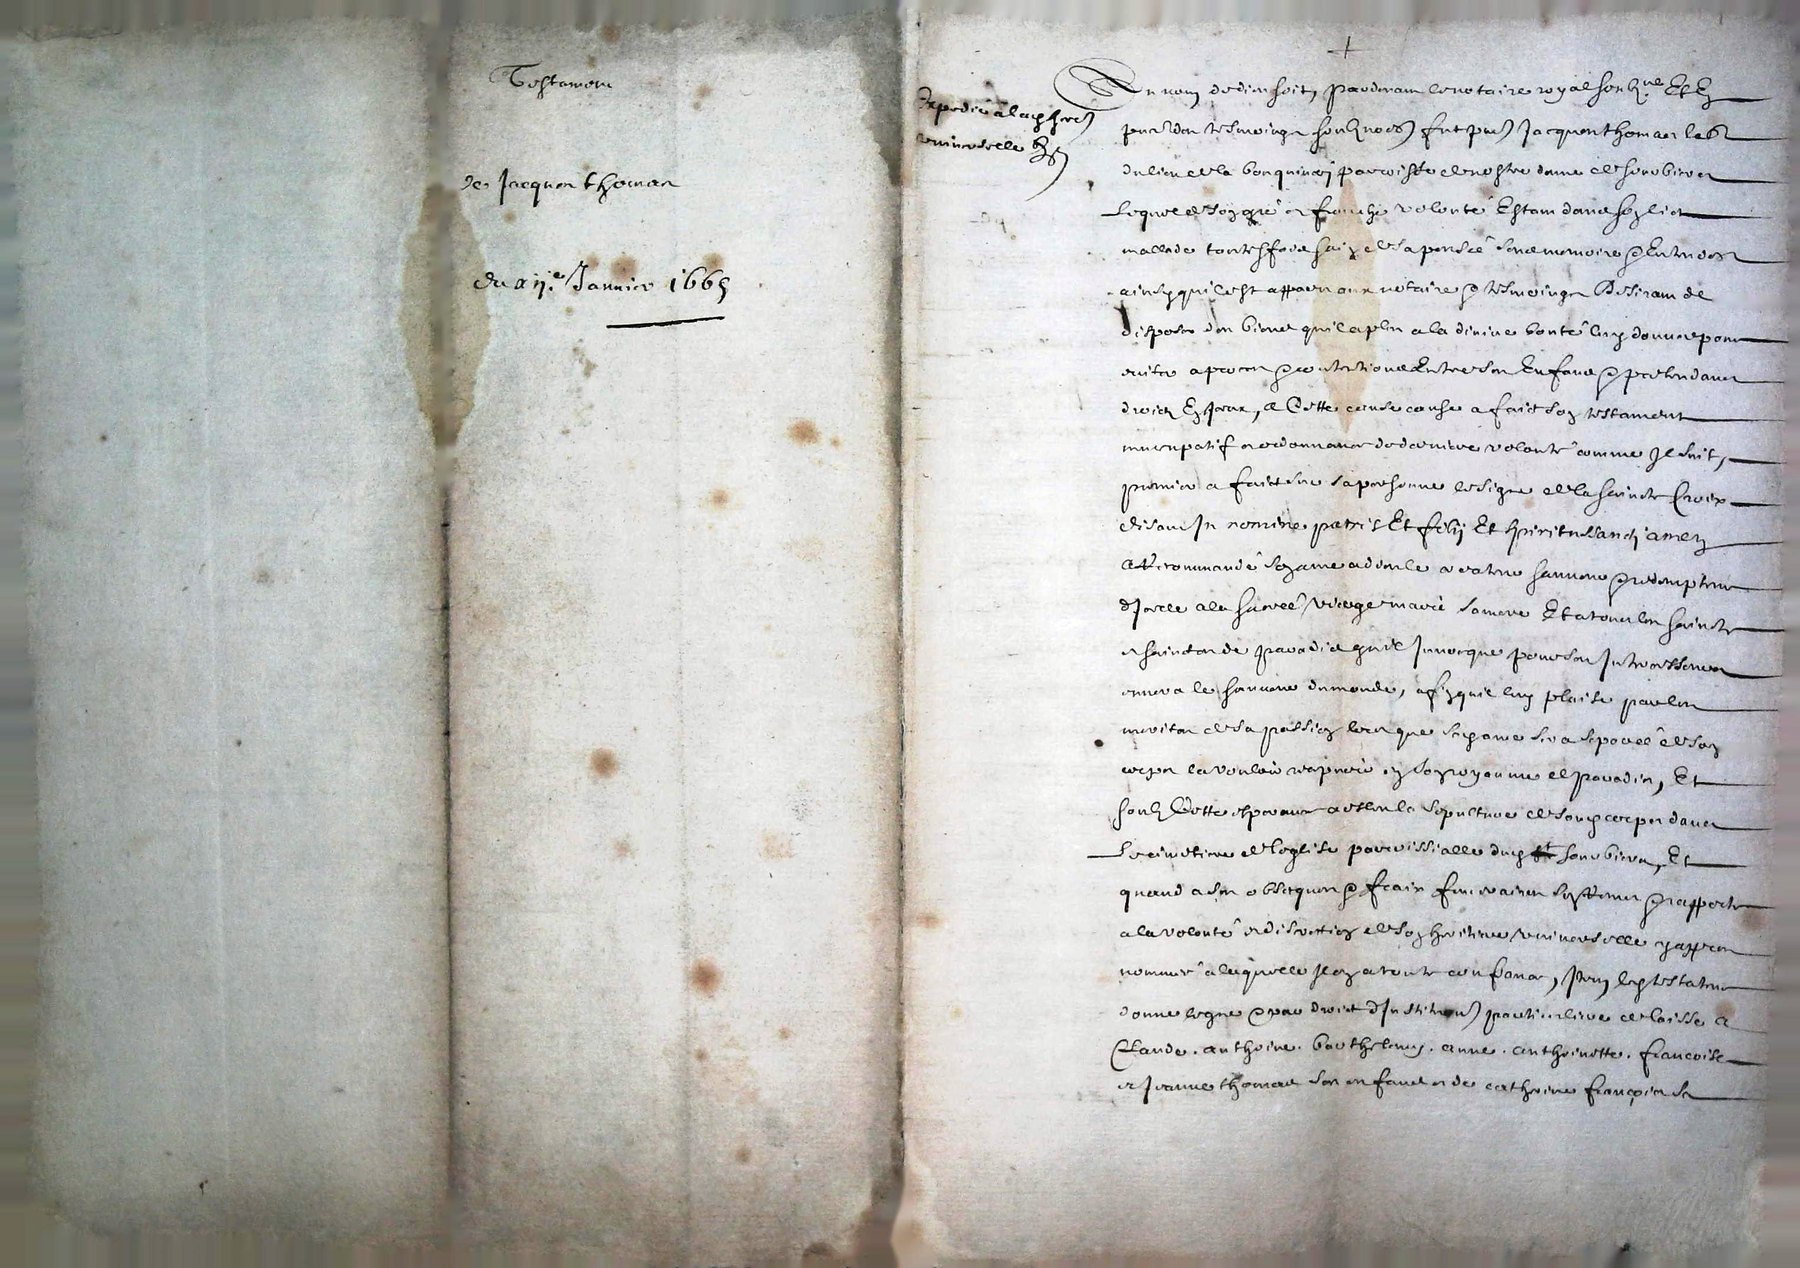 Testament
de Jacques Thomas
du xije Janvier 1665
Expedié à lad. her.
universelle
Au nom de dieu soit, pardevant le notaire royal soubz.né Et Ez
presences des tesmoings soubznoes fut pnt Jacques thomas lab
du lieu de la bouquiney parroisse de nostre dame de sorobiers
Lequel de son gré et franche volonté Estant dans son lict
mallade toutesfois sain de sa pensée sens memoire & Entendet
ainsy qu'il est apparu aux notaire & tesmoings Desirant de
disposer des biens quil a pleu a la divine bonté luy donner pour
eviter a proces & contentions Entre ses Enfans & pretendants
droictz Ez Jceux, A Cette cause a faict son testament
nuncupatif et ordonnance de derniere volonté comme Jl suit,
premier a faict sur sa personne le signe de la saincte Croix
disant Jn nomine patris Et filij Et spiritus sancti amen
A Recommandé son ame a dieu le createur sauveur & redempteur
dJcelle a la sacrée Vierge marie sa mere Et a tous les saincts
et sainctes de paradis quil Jnvocque pour ses Jntercesseurs
envers le sauveur du monde, afin quil luy plaise par les
merites de sa passion lors que son ame sera separée de son
corps la vouloir recepvoir en son royaume de paradis, Et
soubz Cette esperance a esleu la sepulture de son corps dans
Le cimetiere de leglise parroissialle dud sorobiers, Et
quand a ses obseques & fraix funeraires sen remet & rapporte
a la volonté et discretion de son heritiere universelle cy appres
nommée a laquelle Jl en a toute confiance, Jtem led testateur
donne legue & par droict dJnstitution particuliere delaisse A
Claude. anthoine. barthelemy. anne. anthoinette. francoise
et Jeanne thomas ses enfans et de catherine françois sa